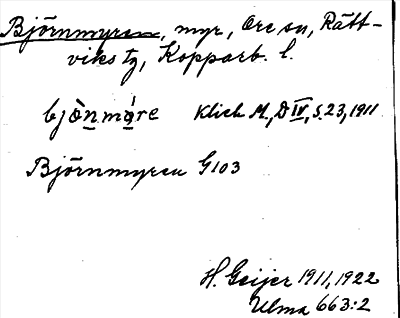 Björnmyren, myr, Ore sn, Rätt-
viks tg, Kopparb. l.
bjö̀n mý̀re Klich M., D IV, S. 23, 1911
Björnmyren G103
H. Geijer 1911, 1922
Ulma 663:2